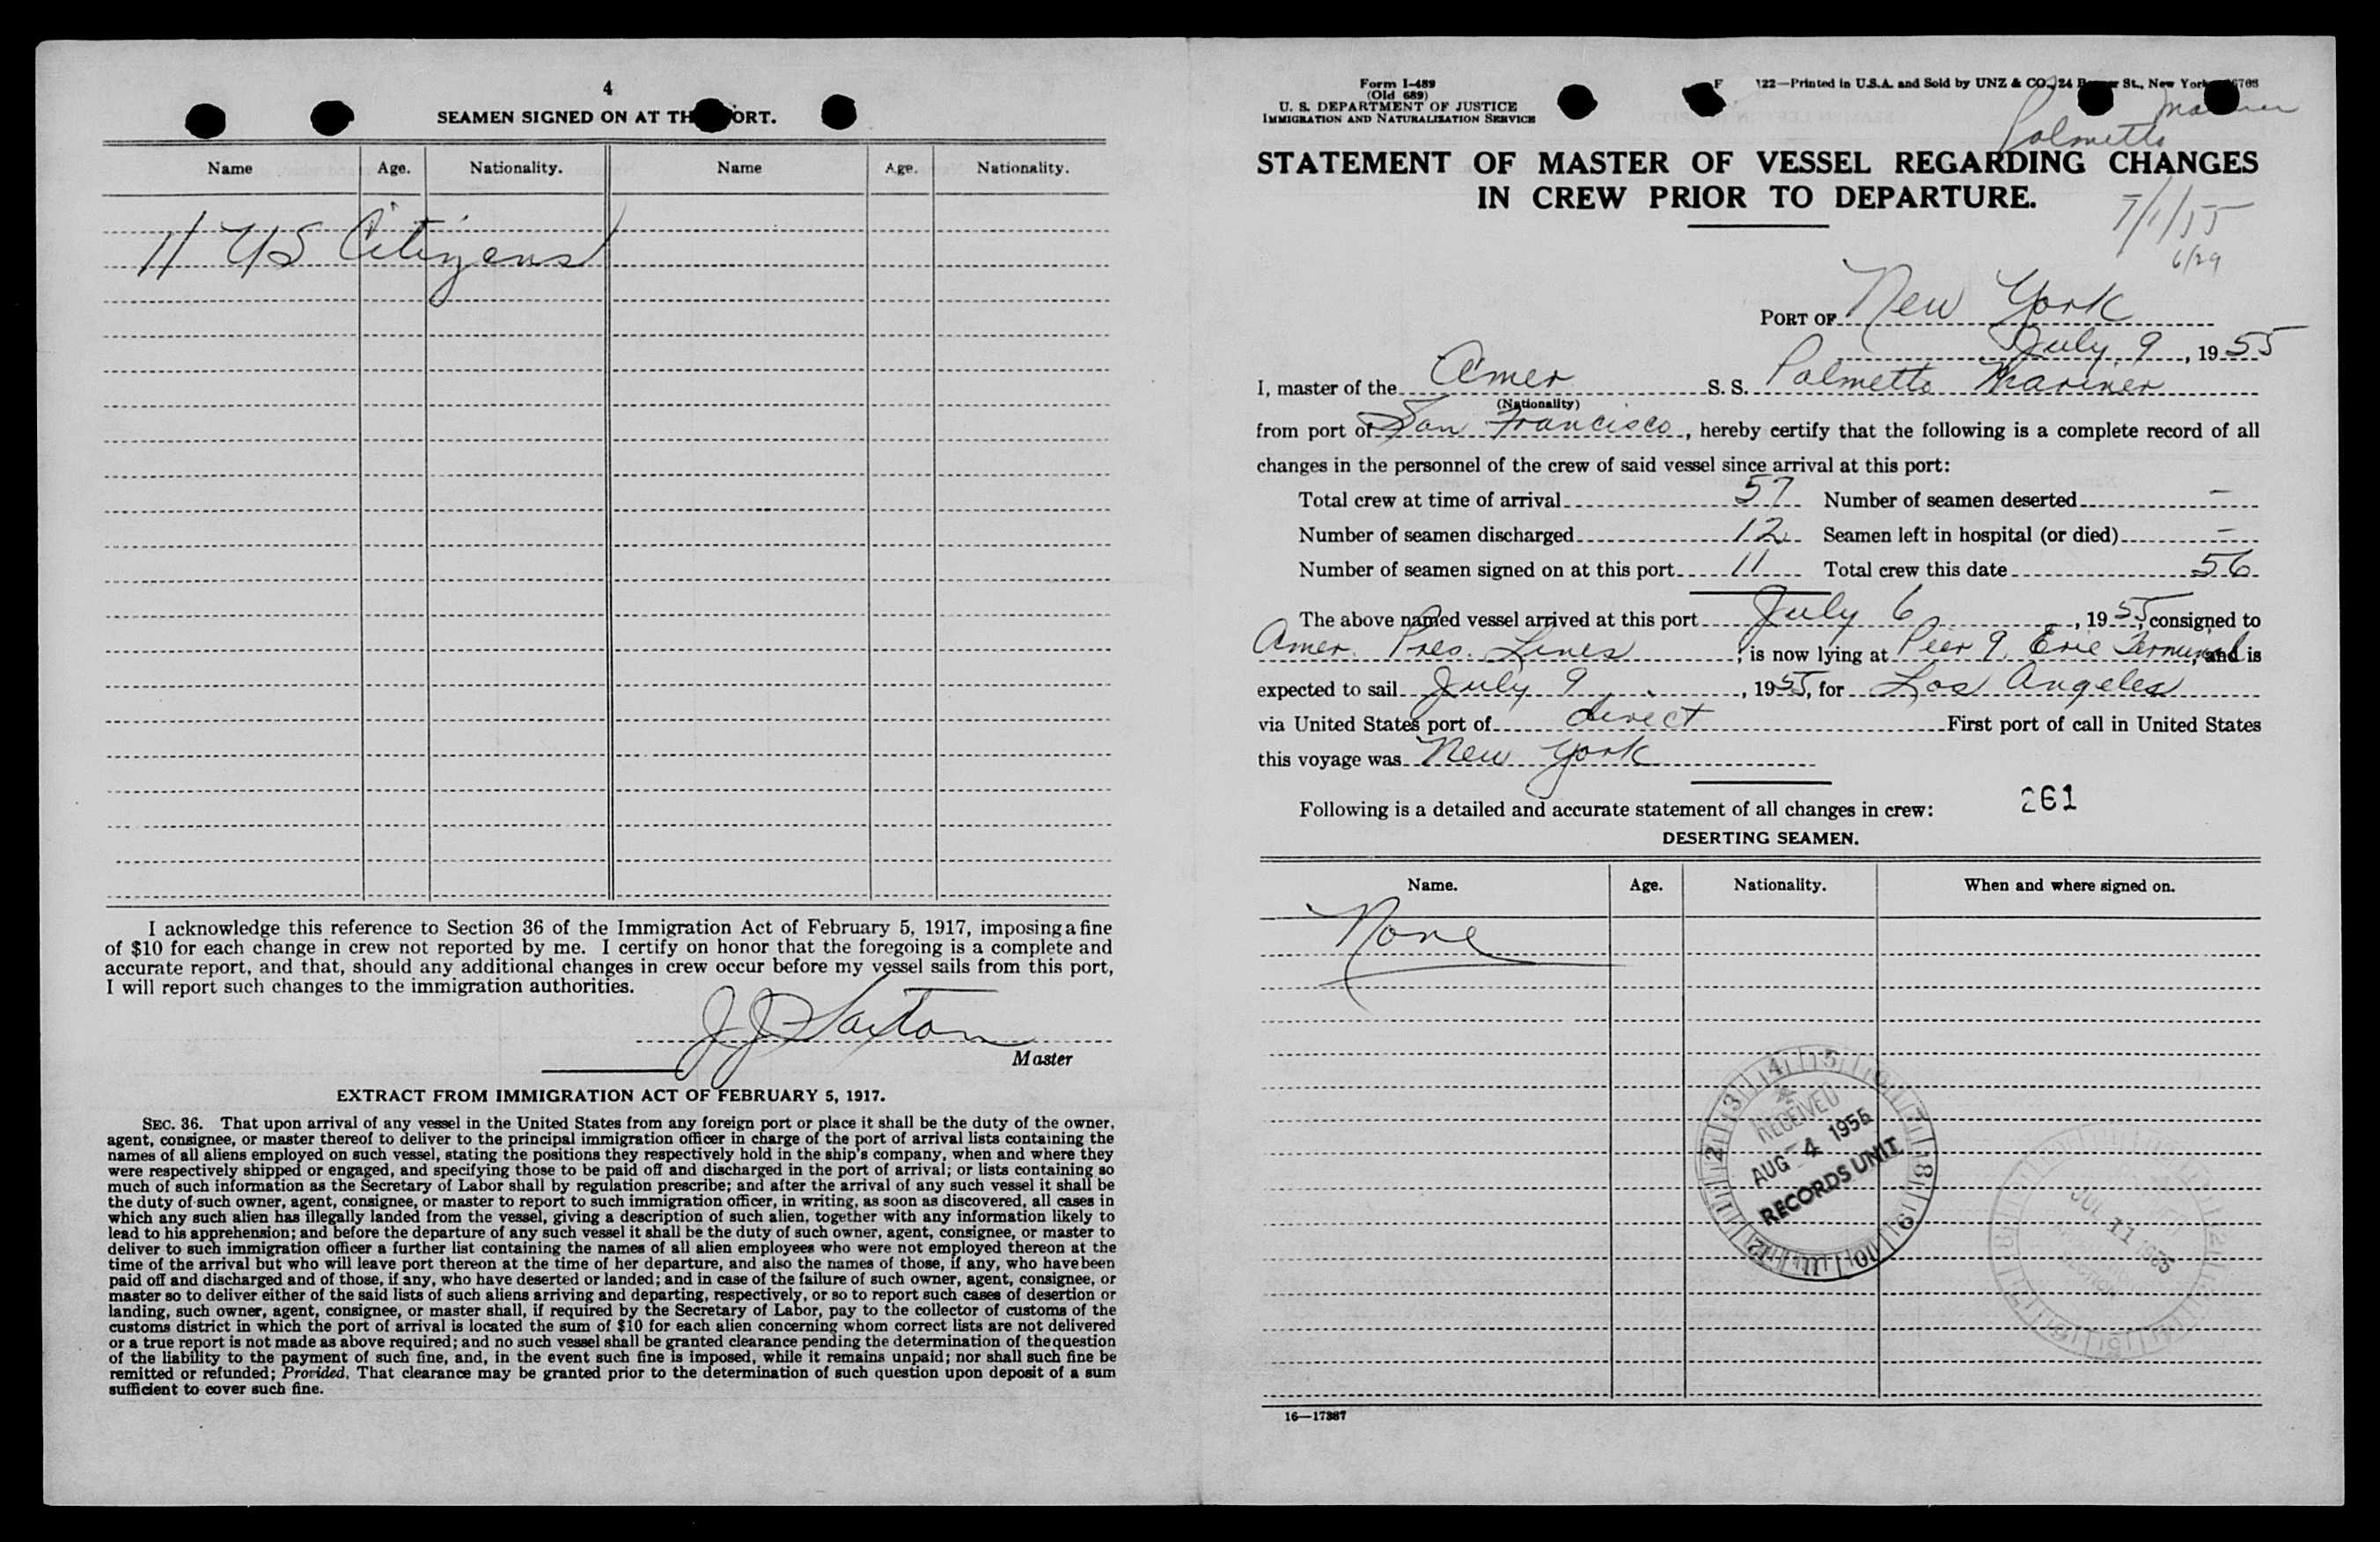 4
SEAMEN SIGNED ON AT TH PORT.
Name Age. Nationality. Name Age. Nationality.
11 US Citizens
I acknowledge this reference to Section 36 of the Immigration Act of February 5, 1917, imposing a fine
of $10 for each change in crew not reported by me. I certify on honor that the foregoing is a complete and
accurate report, and that, should any additional changes in crew occur before my vessel sails from this port,
I will report such changes to the immigration authorities.
J J Saxton
Master
EXTRACT FROM IMMIGRATION ACT OF FEBRUARY 5, 1917.
SEC. 36. That upon arrival of any vessel in the United States from any foreign port or place it shall be the duty of the owner,
agent, consignee, or master thereof to deliver to the principal immigration officer in charge of the port of arrival lists containing the
names of all aliens employed on such vessel, stating the positions they respectively hold in the ship's company, when and where they
were respectively shipped or engaged, and specifying those to be paid off and discharged in the port of arrival; or lists containing so
much of such information as the Secretary of Labor shall by regulation prescribe; and after the arrival of any such vessel it shall be
the duty of such owner, agent, consignee, or master to report to such immigration officer, in writing, as soon as discovered, all cases in
which any such alien has illegally landed from the vessel, giving a description of such alien, together with any information likely to
lead to his apprehension; and before the departure of any such vessel it shall be the duty of such owner, agent, consignee, or master to
deliver to such immigration officer a further list containing the names of all alien employees who were not employed thereon at the
time of the arrival but who will leave port thereon at the time of her departure, and also the names of those, if any, who have been
paid off and discharged and of those, if any, who have deserted or landed; and in case of the failure of such owner, agent, consignee, or
master so to deliver either of the said lists of such aliens arriving and departing, respectively, or so to report such cases of desertion or
landing, such owner, agent, consignee, or master shall, if required by the Secretary of Labor, pay to the collector of customs of the
customs district in which the port of arrival is located the sum of $10 for each alien concerning whom correct lists are not delivered
or a true report is not made as above required; and no such vessel shall be granted clearance pending the determination of the question
of the liability to the payment of such fine, and, in the event such fine is imposed, while it remains unpaid; nor shall such fine be
remitted or refunded; Provided, That clearance may be granted prior to the determination of such question upon deposit of a sum
sufficient to cover such fine.
Form I-489
(Old 689)
U. S. DEPARTMENT OF JUSTICE
IMMIGRATION AND NATURALIZATION SERVICE
F 122—Printed in U.S.A. and Sold by UNZ & CO., 24 St., New York
Palmetto Mariner
STATEMENT OF MASTER OF VESSEL REGARDING CHANGES
IN CREW PRIOR TO DEPARTURE.
7/1/55
6/29
PORT OF New York
July 9, 1955
I, master of the Amer S. S. Palmetto Mariner
(Nationality)
from port of San Francisco, hereby certify that the following is a complete record of all
changes in the personnel of the crew of said vessel since arrival at this port:
Total crew at time of arrival 57 Number of seamen deserted –
Number of seamen discharged 12 Seamen left in hospital (or died) –
Number of seamen signed on at this port 11 Total crew this date 56
The above named vessel arrived at this port July 6, 1955, consigned to
Amer. Pres. Lines, is now lying at Peer 9, Erie Terminal, and is
expected to sail July 9, 1955, for Los Angeles
via United States port of direct First port of call in United States
this voyage was New York
Following is a detailed and accurate statement of all changes in crew: 261
DESERTING SEAMEN.
Name. Age. Nationality. When and where signed on.
None
RECEIVED
AUG - 4 1955
RECORDS UNIT
JUL 11 1955
16—17387